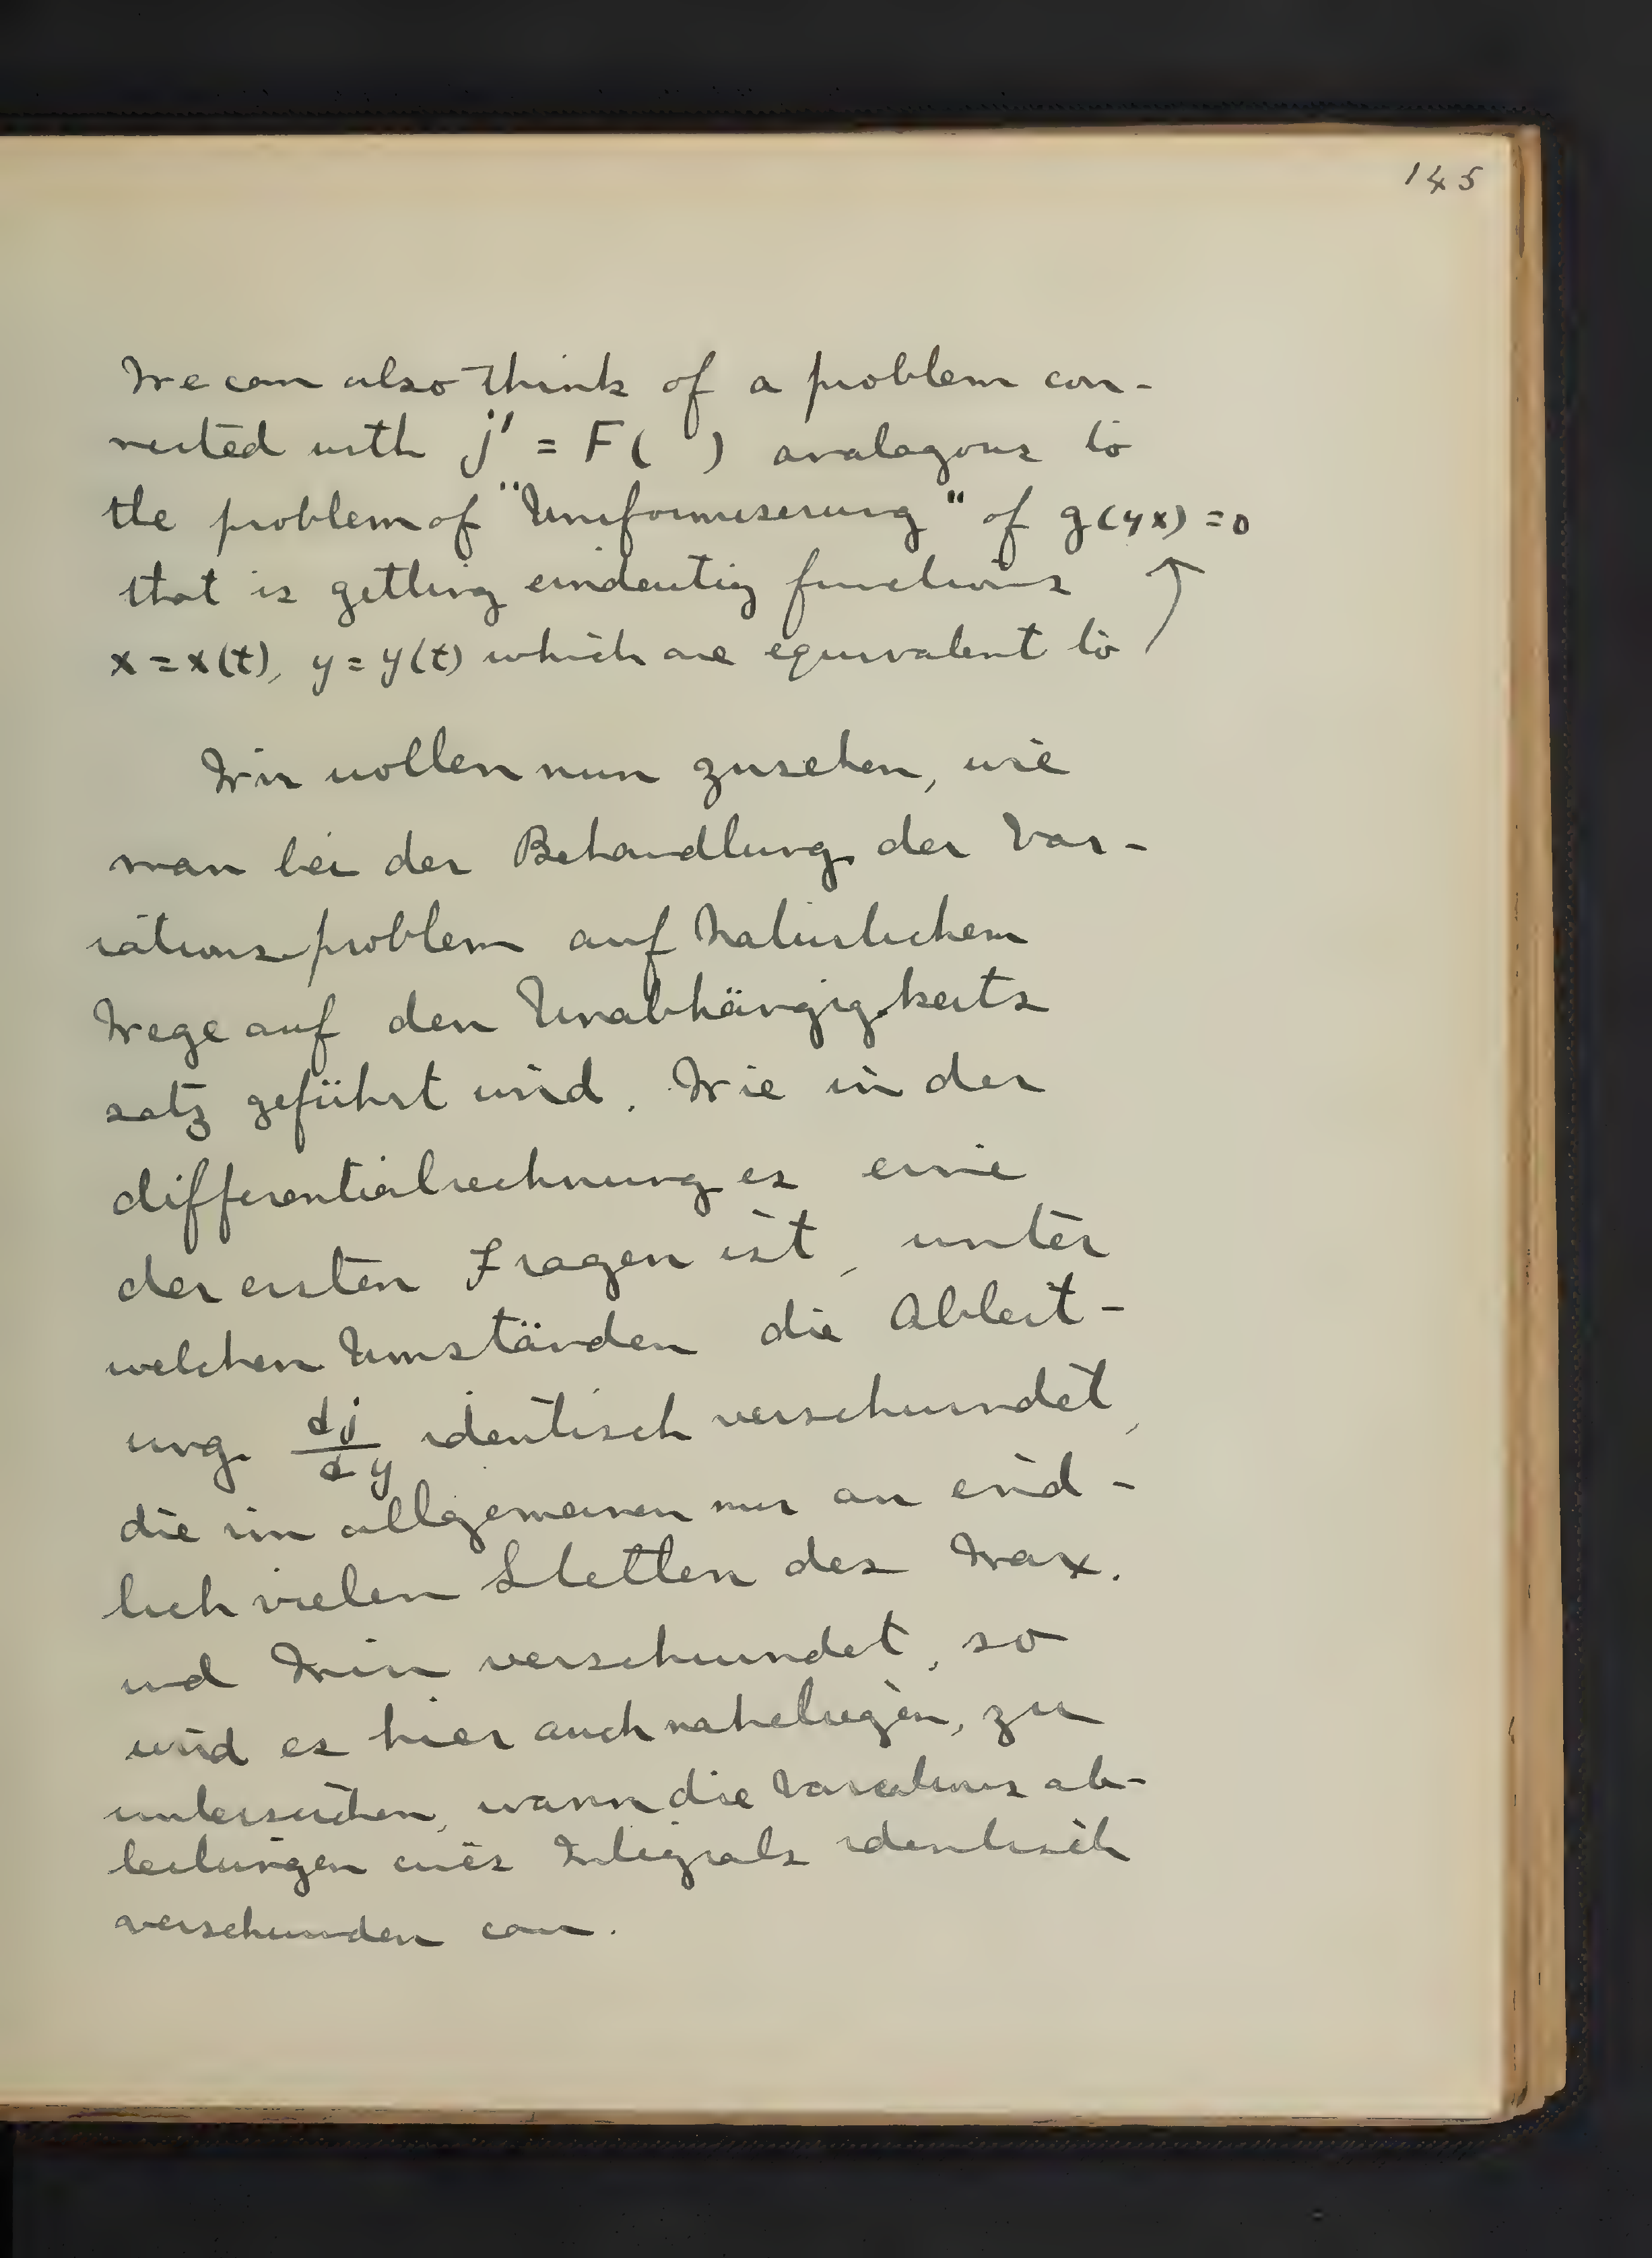 145
We can also think of a problem con-
nected with j' = F( ) analagous to
the problem of "Uniformiserung" of g(yx) = 0
that is getting eindeutig functions
x = x(t), y = y(t) which are equivalent to ↑
Wir wollen nun zusehen, wie
man bei der Behandlung der Var-
iationsproblem auf natürlichem
Wege auf den Unabhängigkeits
satz geführt wird. Wie in der
differentialrechnung es eine
der ersten Fragen ist, unter
welchen Umständen die Ableit-
ung dj/dy identisch verschwindet,
die im allgemeinen nur an end-
lich vielen Stellen des Max.
und Min verschwindet, so
wird es hier auch naheliegen, zu
untersuchen, wann die Variations ab-
leitungen eines Integrals identisch
verschwinden can.